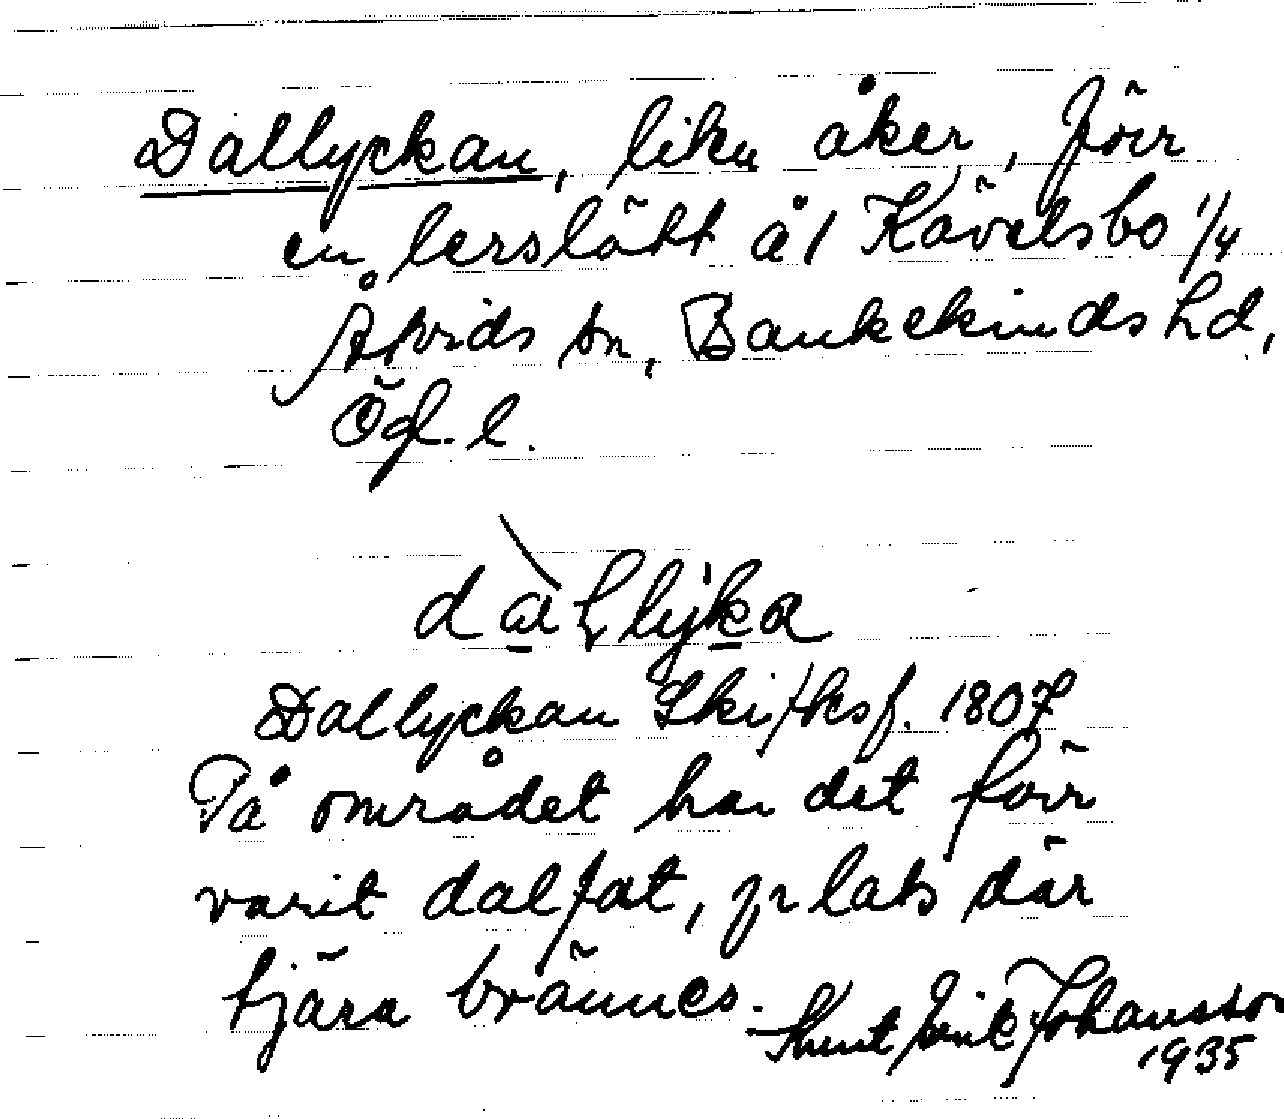 Dallyckan, liten åker, förr
en lerslätt åt Kävelsbo 1/4
Åtvids sn, Bankekinds hd,
Ögl. l.
dàllyka
Dallyckan Skifksf. 1807
På området har det förr
varit dalfat, plats där
tjära brännes.
Knut Erik Johansson
1935